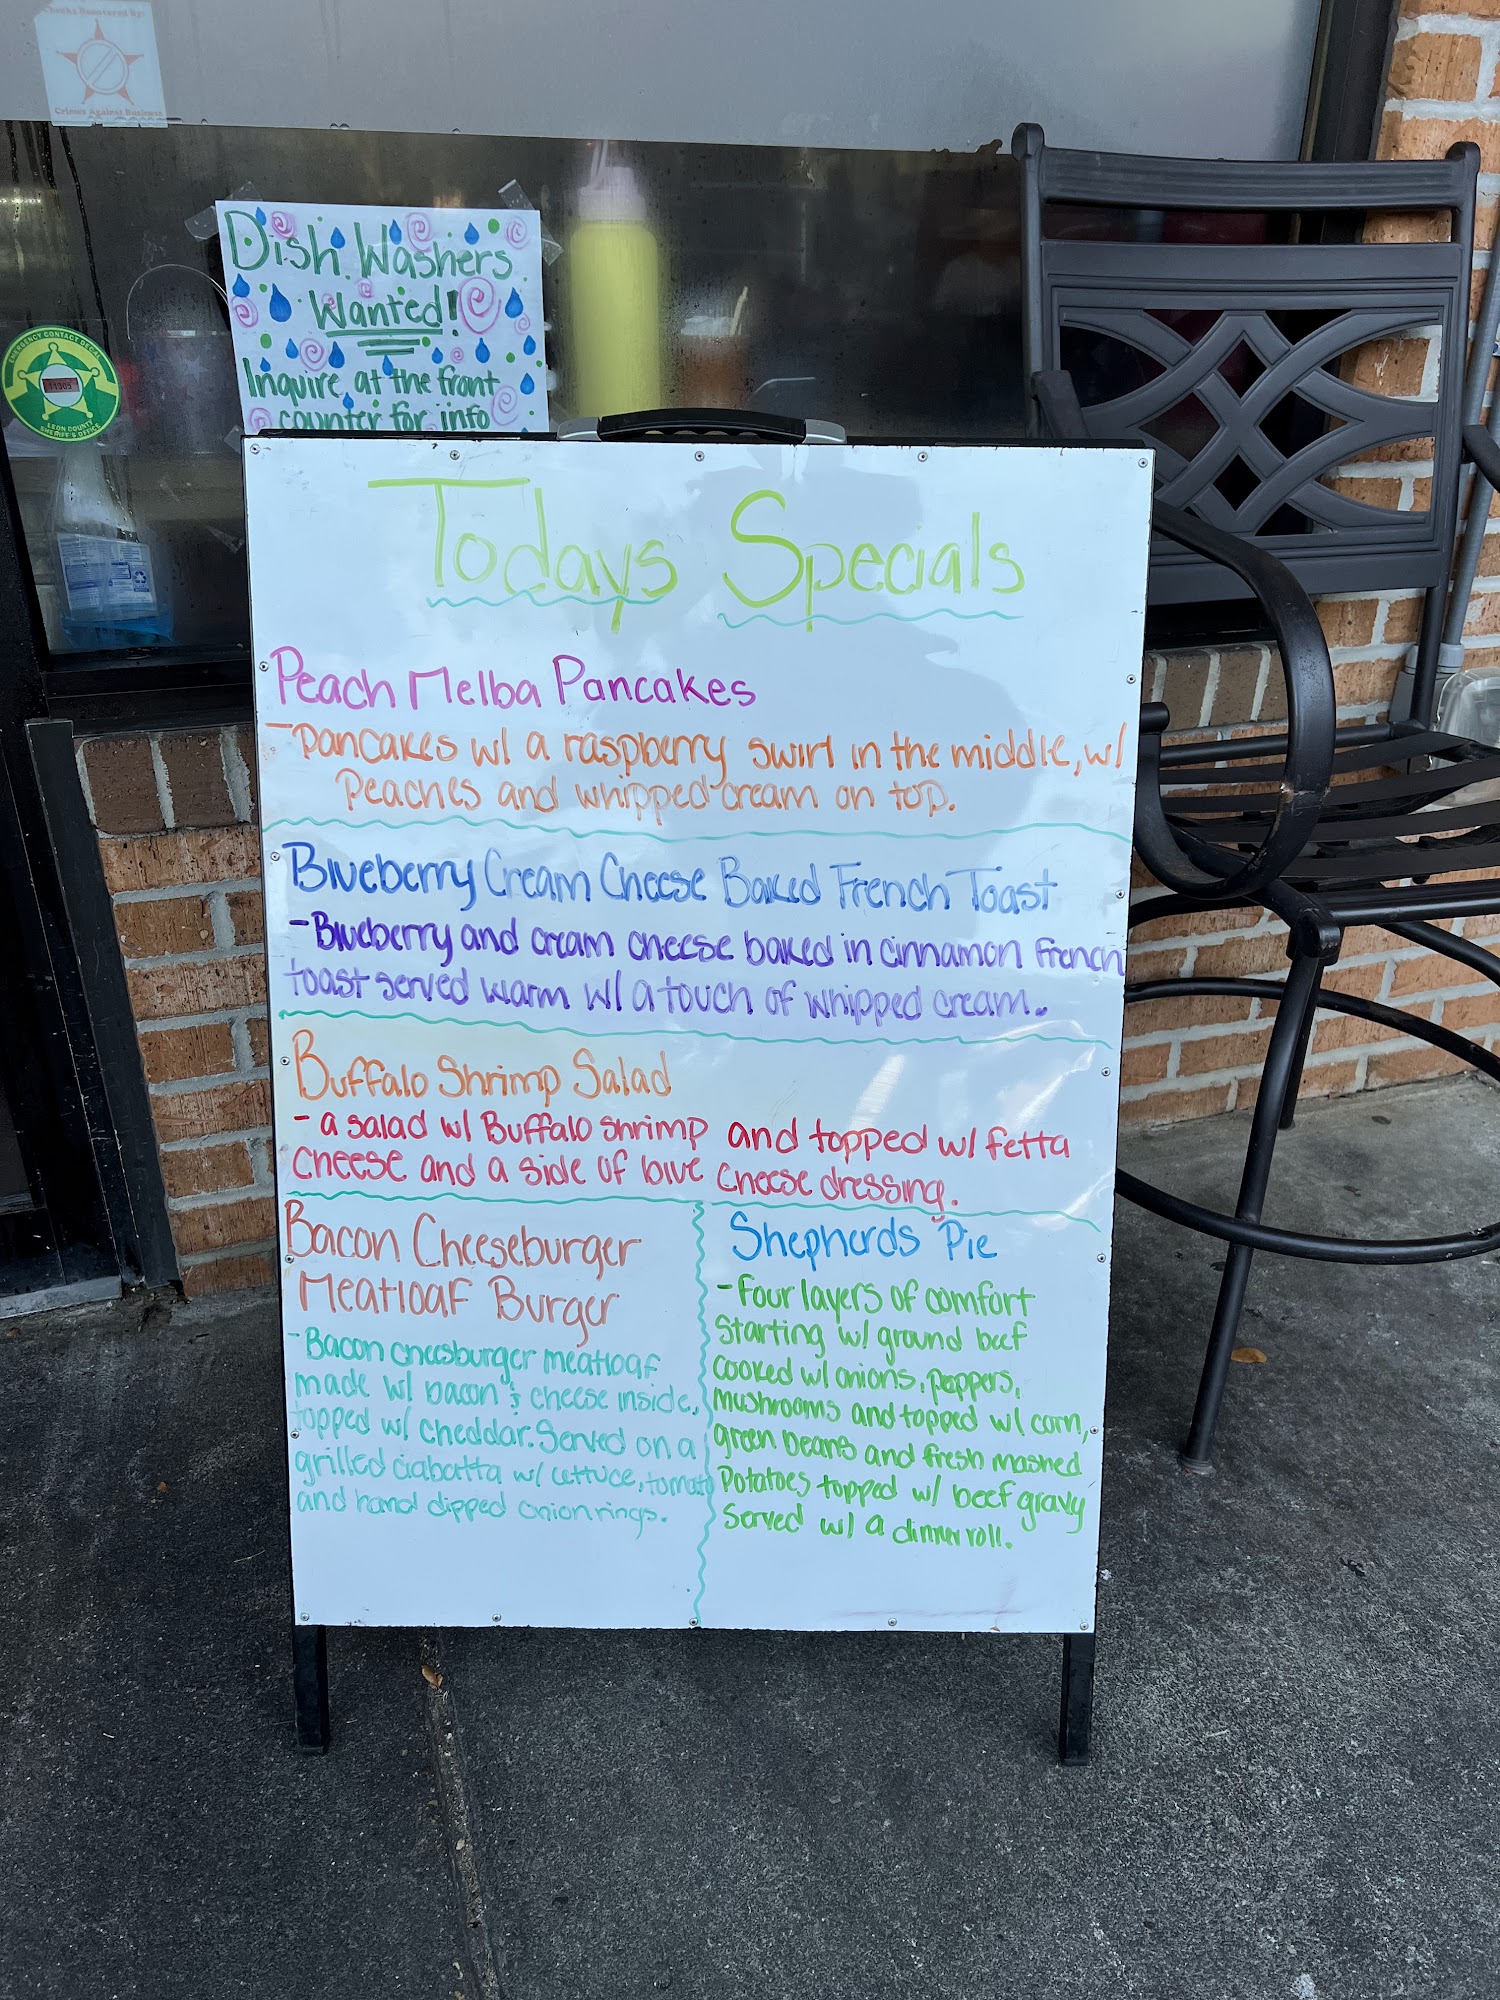 Checks Monitored By:
Crimes Against Business
Dish Washers
Wanted!
Inquire at the front
counter for info
EMERGENCY CONTACT DECAL
11305
LEON COUNTY
SHERIFF'S OFFICE
Todays Specials
Peach Melba Pancakes
- Pancakes w/ a raspberry swirl in the middle, w/
Peaches and whipped cream on top.
Blueberry Cream Cheese Baked French Toast
- Blueberry and cream cheese baked in cinnamon French
toast served warm w/ a touch of whipped cream.
Buffalo Shrimp Salad
- a salad w/ Buffalo shrimp and topped w/ fetta
cheese and a side of blue cheese dressing.
Bacon Cheeseburger
Meatloaf Burger
- Bacon cheesburger meatloaf
made w/ bacon & cheese inside,
topped w/ cheddar. Served on a
grilled ciabatta w/ lettuce, tomato
and hand dipped onion rings.
Shepherds Pie
- Four layers of comfort
Starting w/ ground beef
cooked w/ onions, peppers,
mushrooms and topped w/ corn,
green beans and fresh mashed
Potatoes topped w/ beef gravy
Served w/ a dinner roll.